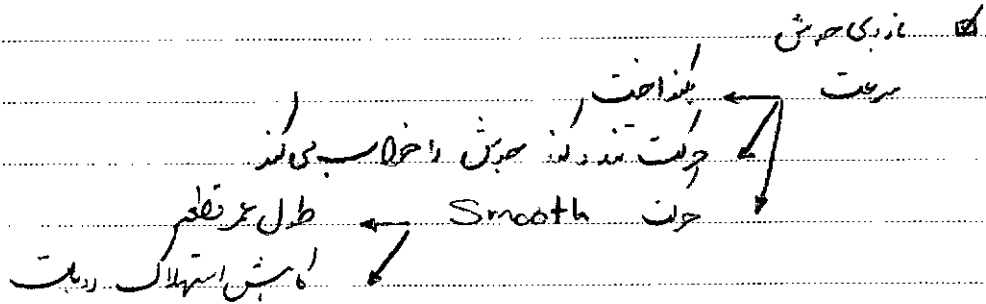 بازرسی جوش
سرعت ← یکنواخت
حرکت تند و کند جوش را خراب می کند
حرکت Smooth ← طول عمر قطعه
کاهش استهلاک ربات